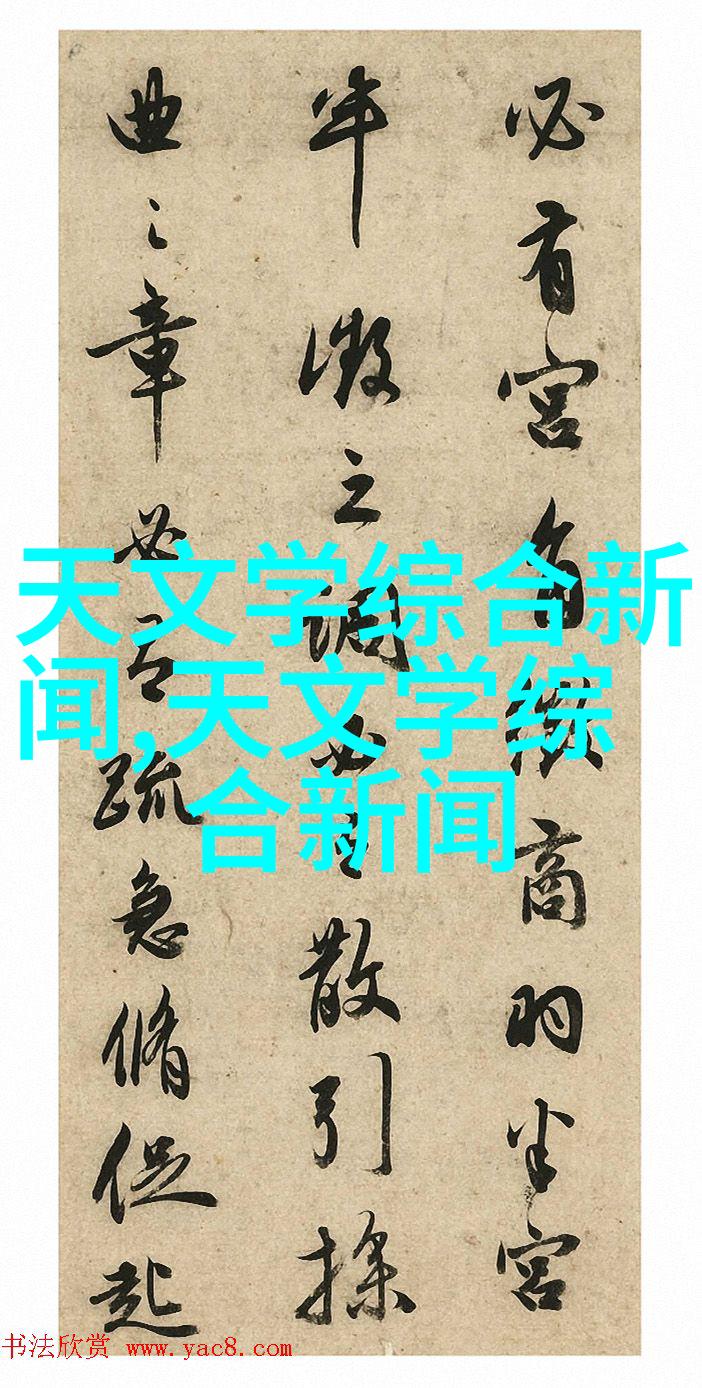 必有宫角徵商羽半宫
半徵之调必有散引操
曲之章必有疏急脩促起
天文学综合新
闻,天文学综
合新闻
书法欣赏 www.yac8.com